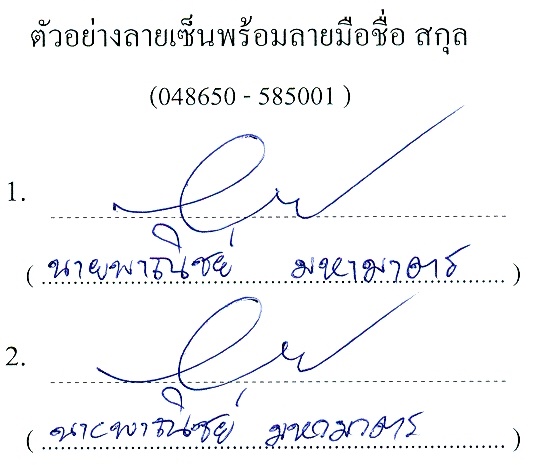 ตัวอย่างลายเซ็นพร้อมลายมือชื่อ สกุล
(048650 - 585001 )
1.
( นายพาณิชย์ มหามาตร )
2.
( นายพาณิชย์ มหามาตร )